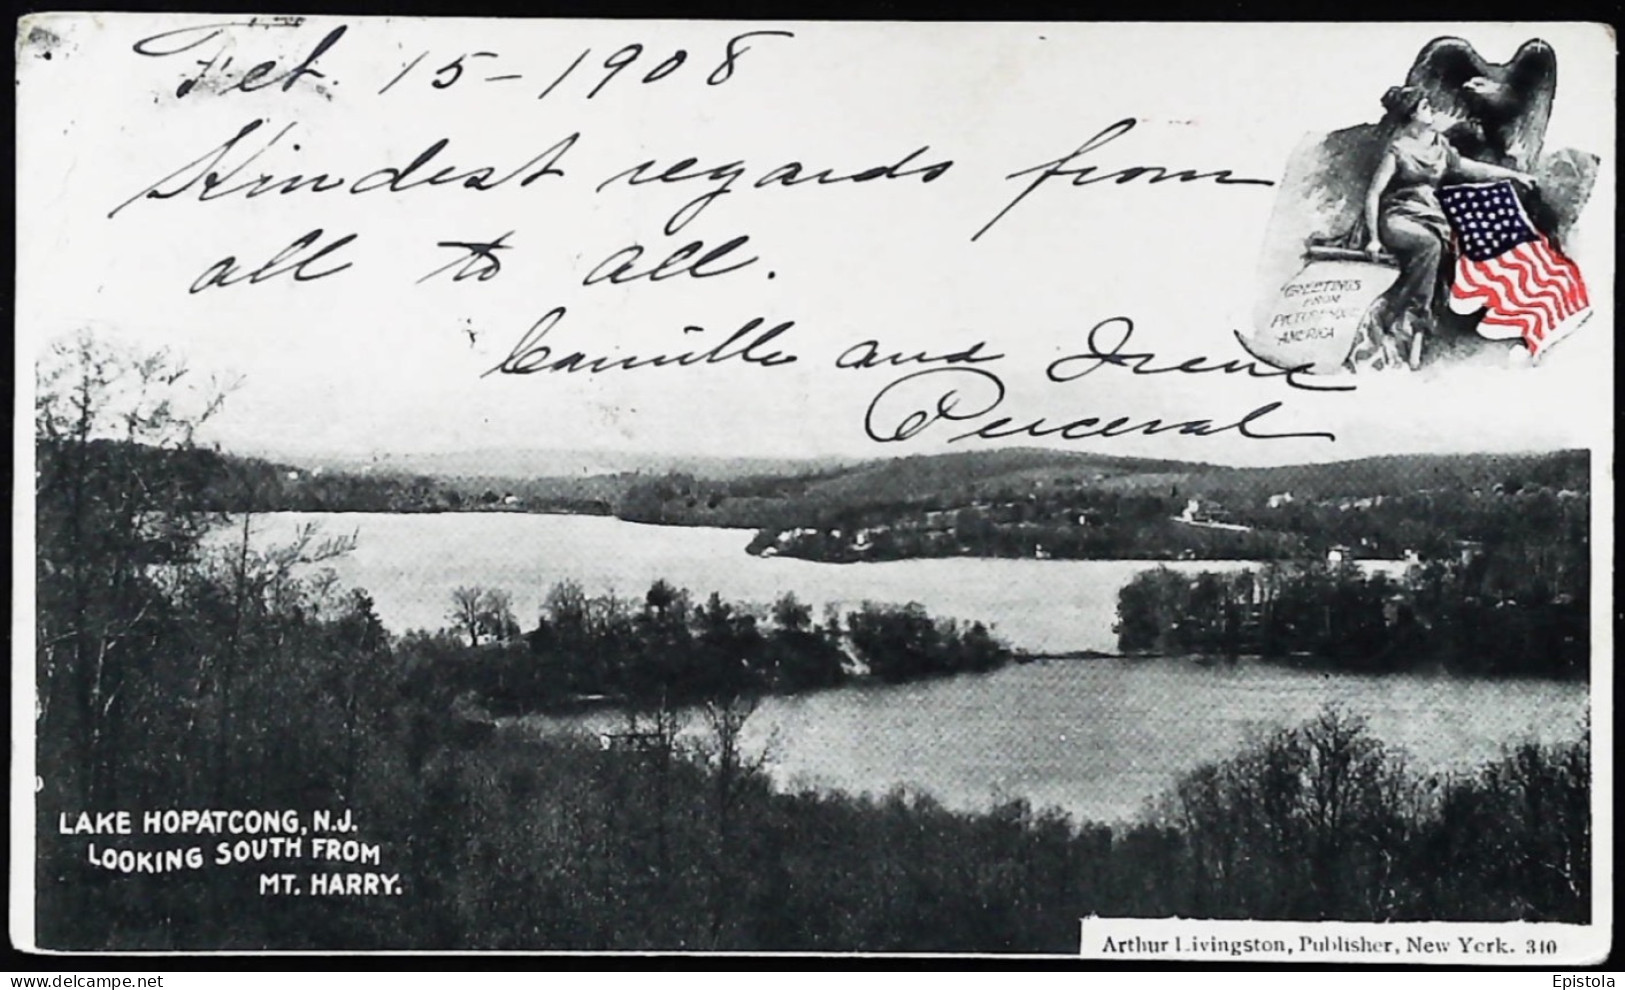 Feb. 15-1908
Kindest regards from
all to all.
Camille and Irene
Perceval
"GREETINGS
FROM
PICTURESQUE
AMERICA
LAKE HOPATCONG, N.J.
LOOKING SOUTH FROM
MT. HARRY.
Arthur Livingston, Publisher, New York. 340
Epistola